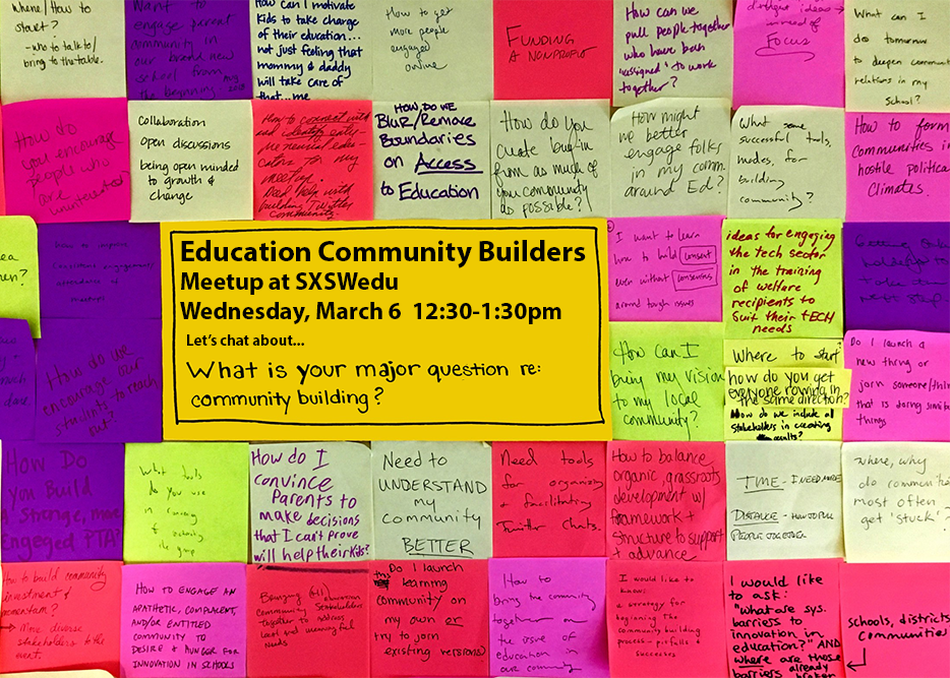 Where/How to
start?
- who to talk to/
bring to the table.
Want to
engage parent
community in
our brand new
school from
the beginning.
How can I motivate
Kids to take charge
of their education...
not just feeling that
mommy & daddy
will take care of
that...me
How to get
more people
engaged
online
FUNDING
A NONPROFIT
How can we
pull people together
who have been
"assigned" to work
together?
ideas
instead of
Focus
What can I
do tomorrow
to deepen commun
relations in my
school?
How do
you encourage
people who
are
uninterested?
Collaboration
Open discussions
being open minded
to growth &
change
How to connect with
and identify
for my
meetup.
Need help with
building Twitter
community
HOW DO WE
Blur/Remove
Boundaries
on Access
to Education
How do you
create buy-in
from as much of
your community
as possible?
How might
we better
engage folks
in my comm.
around Ed?
What some
successful tools,
modes, for
building
community?
How to form
Communities in
hostile political
Climates.
Education Community Builders
Meetup at SXSWedu
Wednesday, March 6 12:30-1:30pm
Let's chat about...
What is your major question re:
community building?
How to improve
Consistent engagement/
attendance at
meetups
I want to learn
how to build consent
even without consensus
around tough issues
ideas for engaging
the tech sector
in the training
of welfare
recipients to
suit their tECH
needs
How do we
encourage our
students to reach
out?
How can I
bring my vision
to my local
community?
Where to start?
how do you get
everyone rowing in
the same direction?
How do we include all
stakeholders in creating
results?
Do I launch a
new thing or
join someone/thin
that is doing similar
things
How Do
you Build
A Strong, more
Engaged PTA?
What tools
do you use
in running
& activating
the group
How do I
convince
Parents to
make decisions
that I can't prove
will help their kids?
Need to
UNDERSTAND
my
Community
BETTER
Need tools
for organizing
& facilitating
Twitter chats.
How to balance
organic, grassroots
development w/
framework +
structure to support
+ advance
TIME - I NEED MORE
DISTANCE - HOW TO PULL
PEOPLE TOGETHER
Where, why
do communitie
most often
get 'stuck'?
How to build community
investment &
momentum?
→ More diverse
stakeholders to the
event.
HOW TO ENGAGE AN
APATHETIC, COMPLACENT,
AND/OR ENTITLED
COMMUNITY TO
DESIRE & HUNGER FOR
INNOVATION IN SCHOOLS
Bringing (all) education
community stakeholders
together to address
local and meaningful
needs
Do I launch
this learning
community on
my own or
try to join
existing versions?
How to
bring the community
together on
the issue of
education in
our community
I would like to
know:
a strategy for
beginning the
community building
process - pitfalls &
successes
I would like
to ask:
"What are sys.
barriers to
innovation in
education?" AND
where are those
barriers already
broken
schools, districts
communities